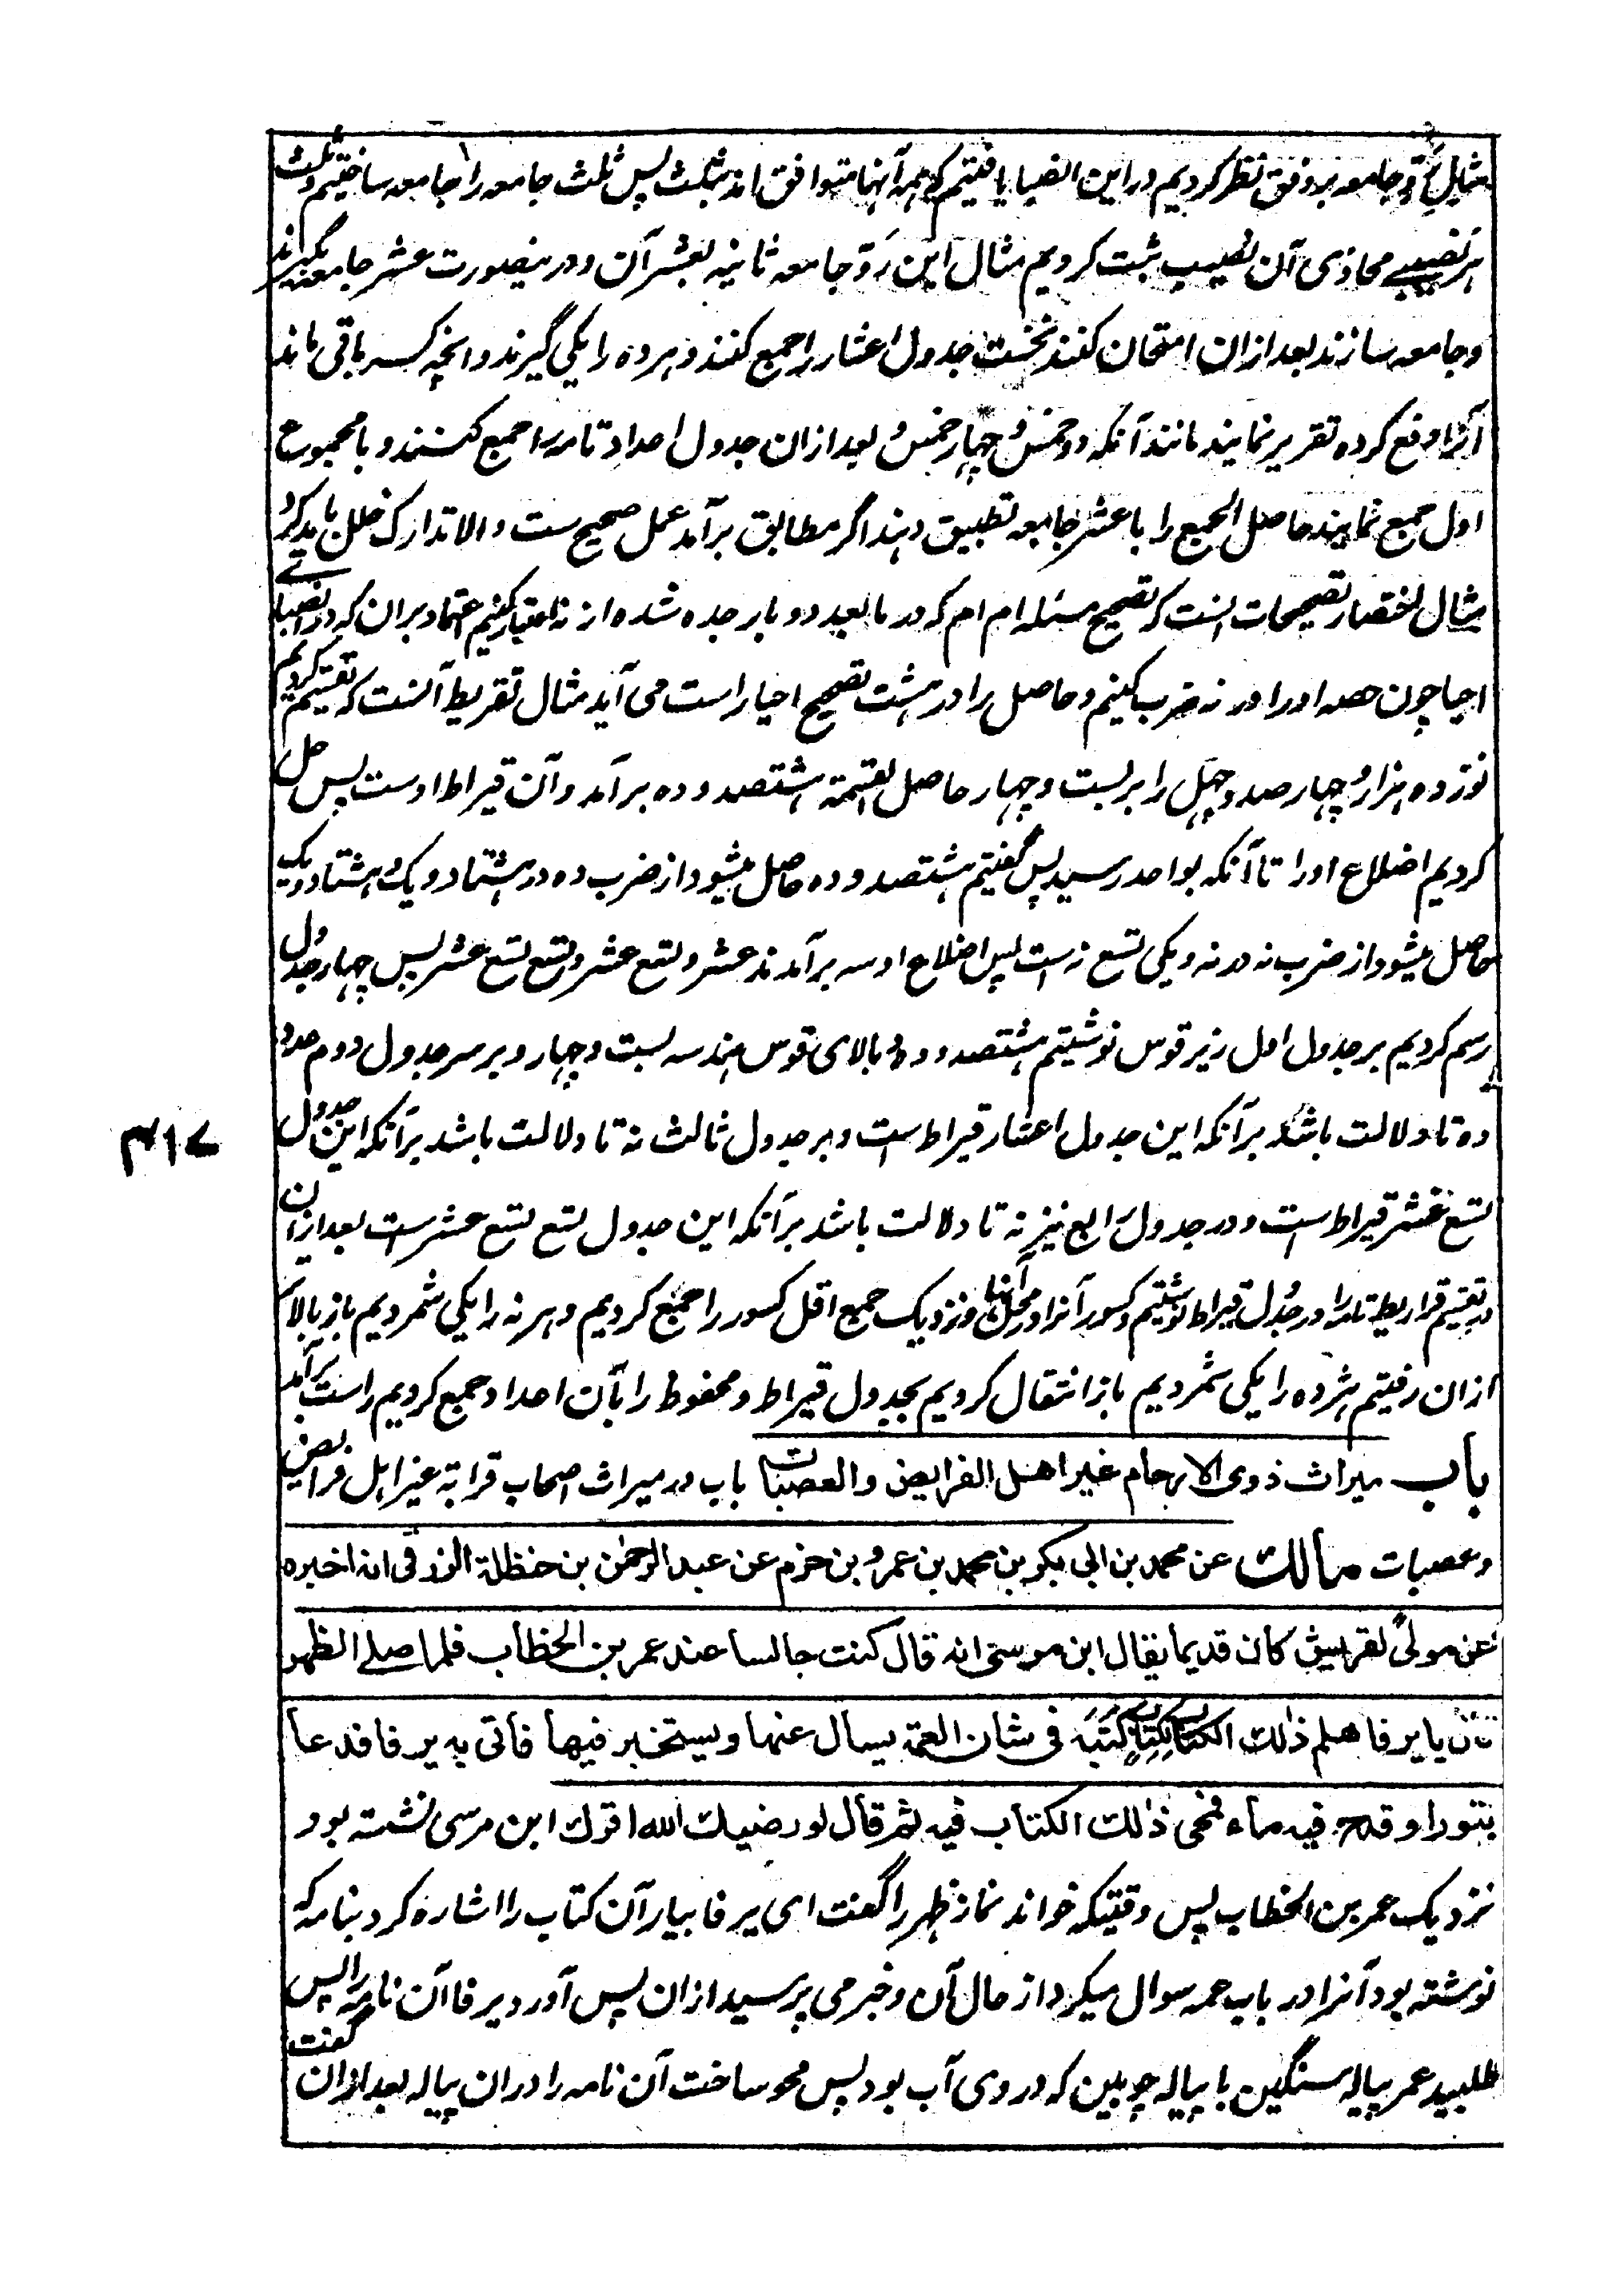 مثال رَدّ و جامعه بروفق نظر کردیم در این انصبا یافتیم که همه آنها متوافق اند بثلث پس ثلث جامعه را جامعه ساختیم و ثلث
هر نصیبے محاذی آن نصیب ثبت کردیم مثال این رَدّ جامعه ثانیه بعشر آن و درینصورت عشر جامعه بگیرند
و جامعه سازند بعد ازان امتحان کنند نخست جدول اعشار را جمع کنند و هر ده را یکی گیرند و آنچه کسر باقی ماند
آنرا رفع کرده تقریر نمایند مانند آنکه دو خمس و چهار خمس و بعد ازان جدول اعداد تامه را جمع کنند و با مجموع
اول جمع نمایند حاصل الجمع را با عشر جامعه تطبیق دهند اگر مطابق برآمد عمل صحیح ست و الا تدارک خلل باید کرد
مثال اختصار تصحیحات آنست که تصحیح مسئله ام ام که در مابعد دو بار جده شده از نه اعتبار کنیم اعتماد بران که در انصبا
احیا چون حصه او را در نه ضرب کنیم و حاصل را در هشت تصحیح احیا راست می آید مثال تقریط آنست که تقسیم کردیم
نوزده هزار و چهار صد و چهل را بر بست و چهار حاصل القسمة هشتصد و ده برآمد و آن قیراط اوست پس حل
کردیم اضلاع او را تا آنکه بواحد رسید پس گفتیم هشتصد و ده حاصل میشود از ضرب ده در هشتاد و یک و هشتاد و یک
حاصل میشود از ضرب نه در نه و یکی تسع نه است پس اضلاع او سه برآمدند عشر و تسع عشر و تسع تسع عشر پس چهار جدول
رسم کردیم بر جدول اول زیر قوس نوشتیم هشتصد و ده و بالای قوس هندسه بست و چهار و بر سر جدول دوم عدد
ده تا دلالت باشد برآنکه این جدول اعشار قیراط ست و بر جدول ثالث نه تا دلالت باشد برآنکه این جدول
تسع عشر قیراط ست و در جدول رابع نیز نه تا دلالت باشد برآنکه این جدول تسع تسع عشر ست بعد ازان
در تقسیم قراریط تامه را در جدول قیراط نوشتیم و کسور آنرا در محل آنها و نزدیک جمع اقل کسور را جمع کردیم و هر نه را یکی شمردیم باز بالاتر
ازان رفتیم هر ده را یکی شمردیم باز انتقال کردیم بجدول قیراط و محفوظ را بآن اعداد جمع کردیم راست برآمد
باب میراث ذوی الارحام غیر اهل الفرایض والعصبات باب در میراث اصحاب قرابة غیر اهل فرائض
و عصبات مالك عن محمد بن ابی بکر بن محمد بن عمرو بن حزم عن عبد الرحمن بن حنظلة الزرقی انه اخبره
عن مولًی لقریش کان قدیما یقال ابن موسی انه قال کنت جالسا عند عمر بن الخطاب فلما صلے الظهر
قال یا یرفا هلم ذلك الکتاب لِکتابٍ کتَبَه فی شان العمة یسال عنها ویستخبر فیها فاتی به یرفا فدعا
بتور او قدح فیه ماء فمحی ذلك الکتاب فیه ثم قال لو رضیك الله اقرك ابن مرسی نشسته بود
نزدیک عمر بن الخطاب پس وقتیکه خواند نماز ظهر را گفت ای یرفا بیار آن کتاب را اشاره کرد بنامه که
نوشته بود آنرا در باب عمه سوال میکرد از حال آن و خبر می پرسید ازان پس آورد یرفا آن نامه را پس
طلبید عمر پیاله سنگین یا پیاله چوبین که در وی آب بود پس محو ساخت آن نامه را دران پیاله بعد ازان گفت
۴۱۷